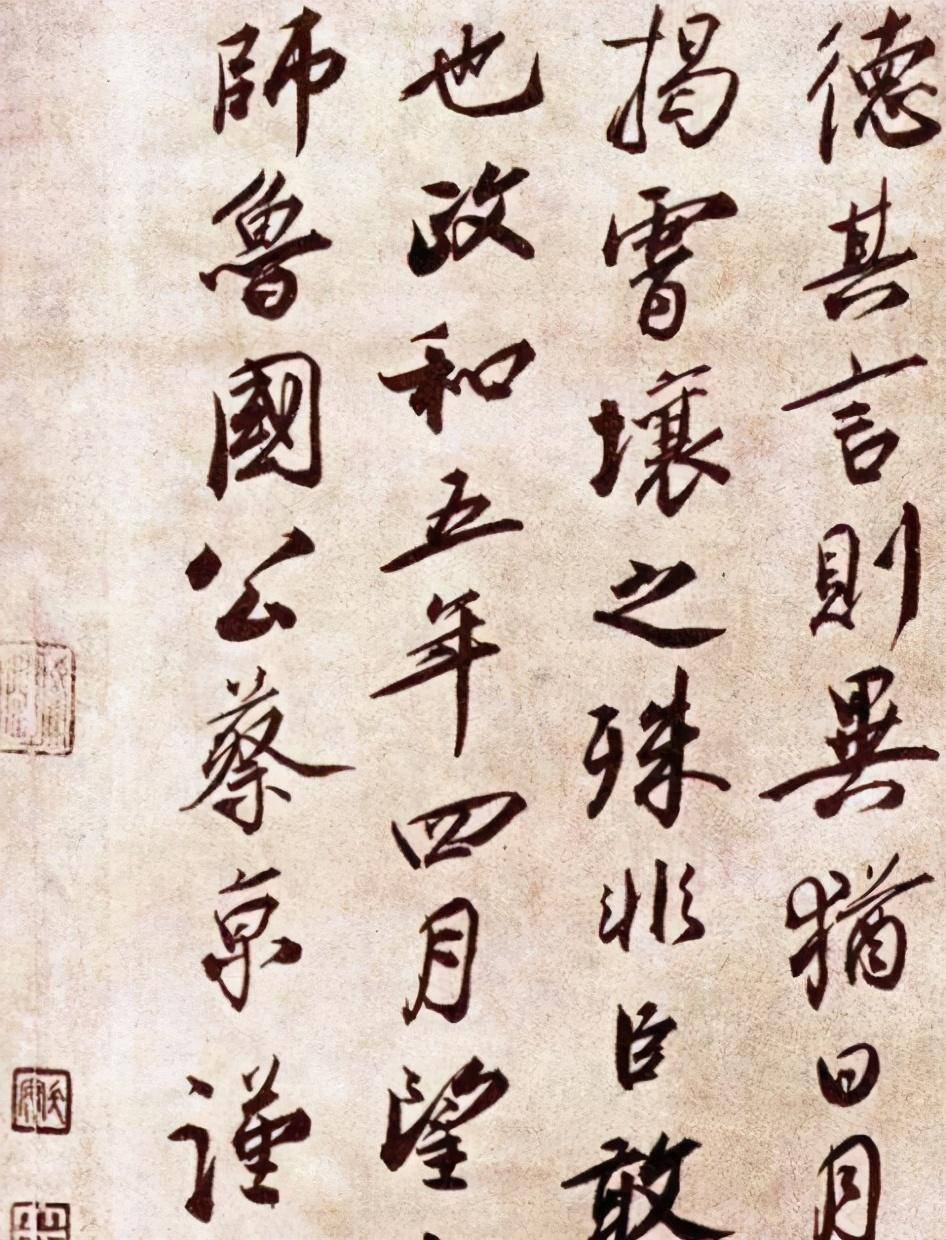 德其言則異猶日月
揭霄壤之殊非臣敢
也政和五年四月望
師魯國公蔡京謹